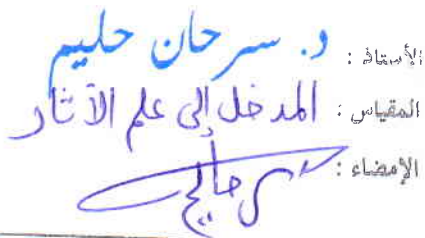 الأستاذ : د. سرحان حليم
المقياس : المدخل إلى علم الآثار
الإمضاء :